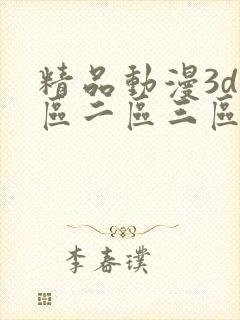 精品動漫3d
區二區三區
李春璞